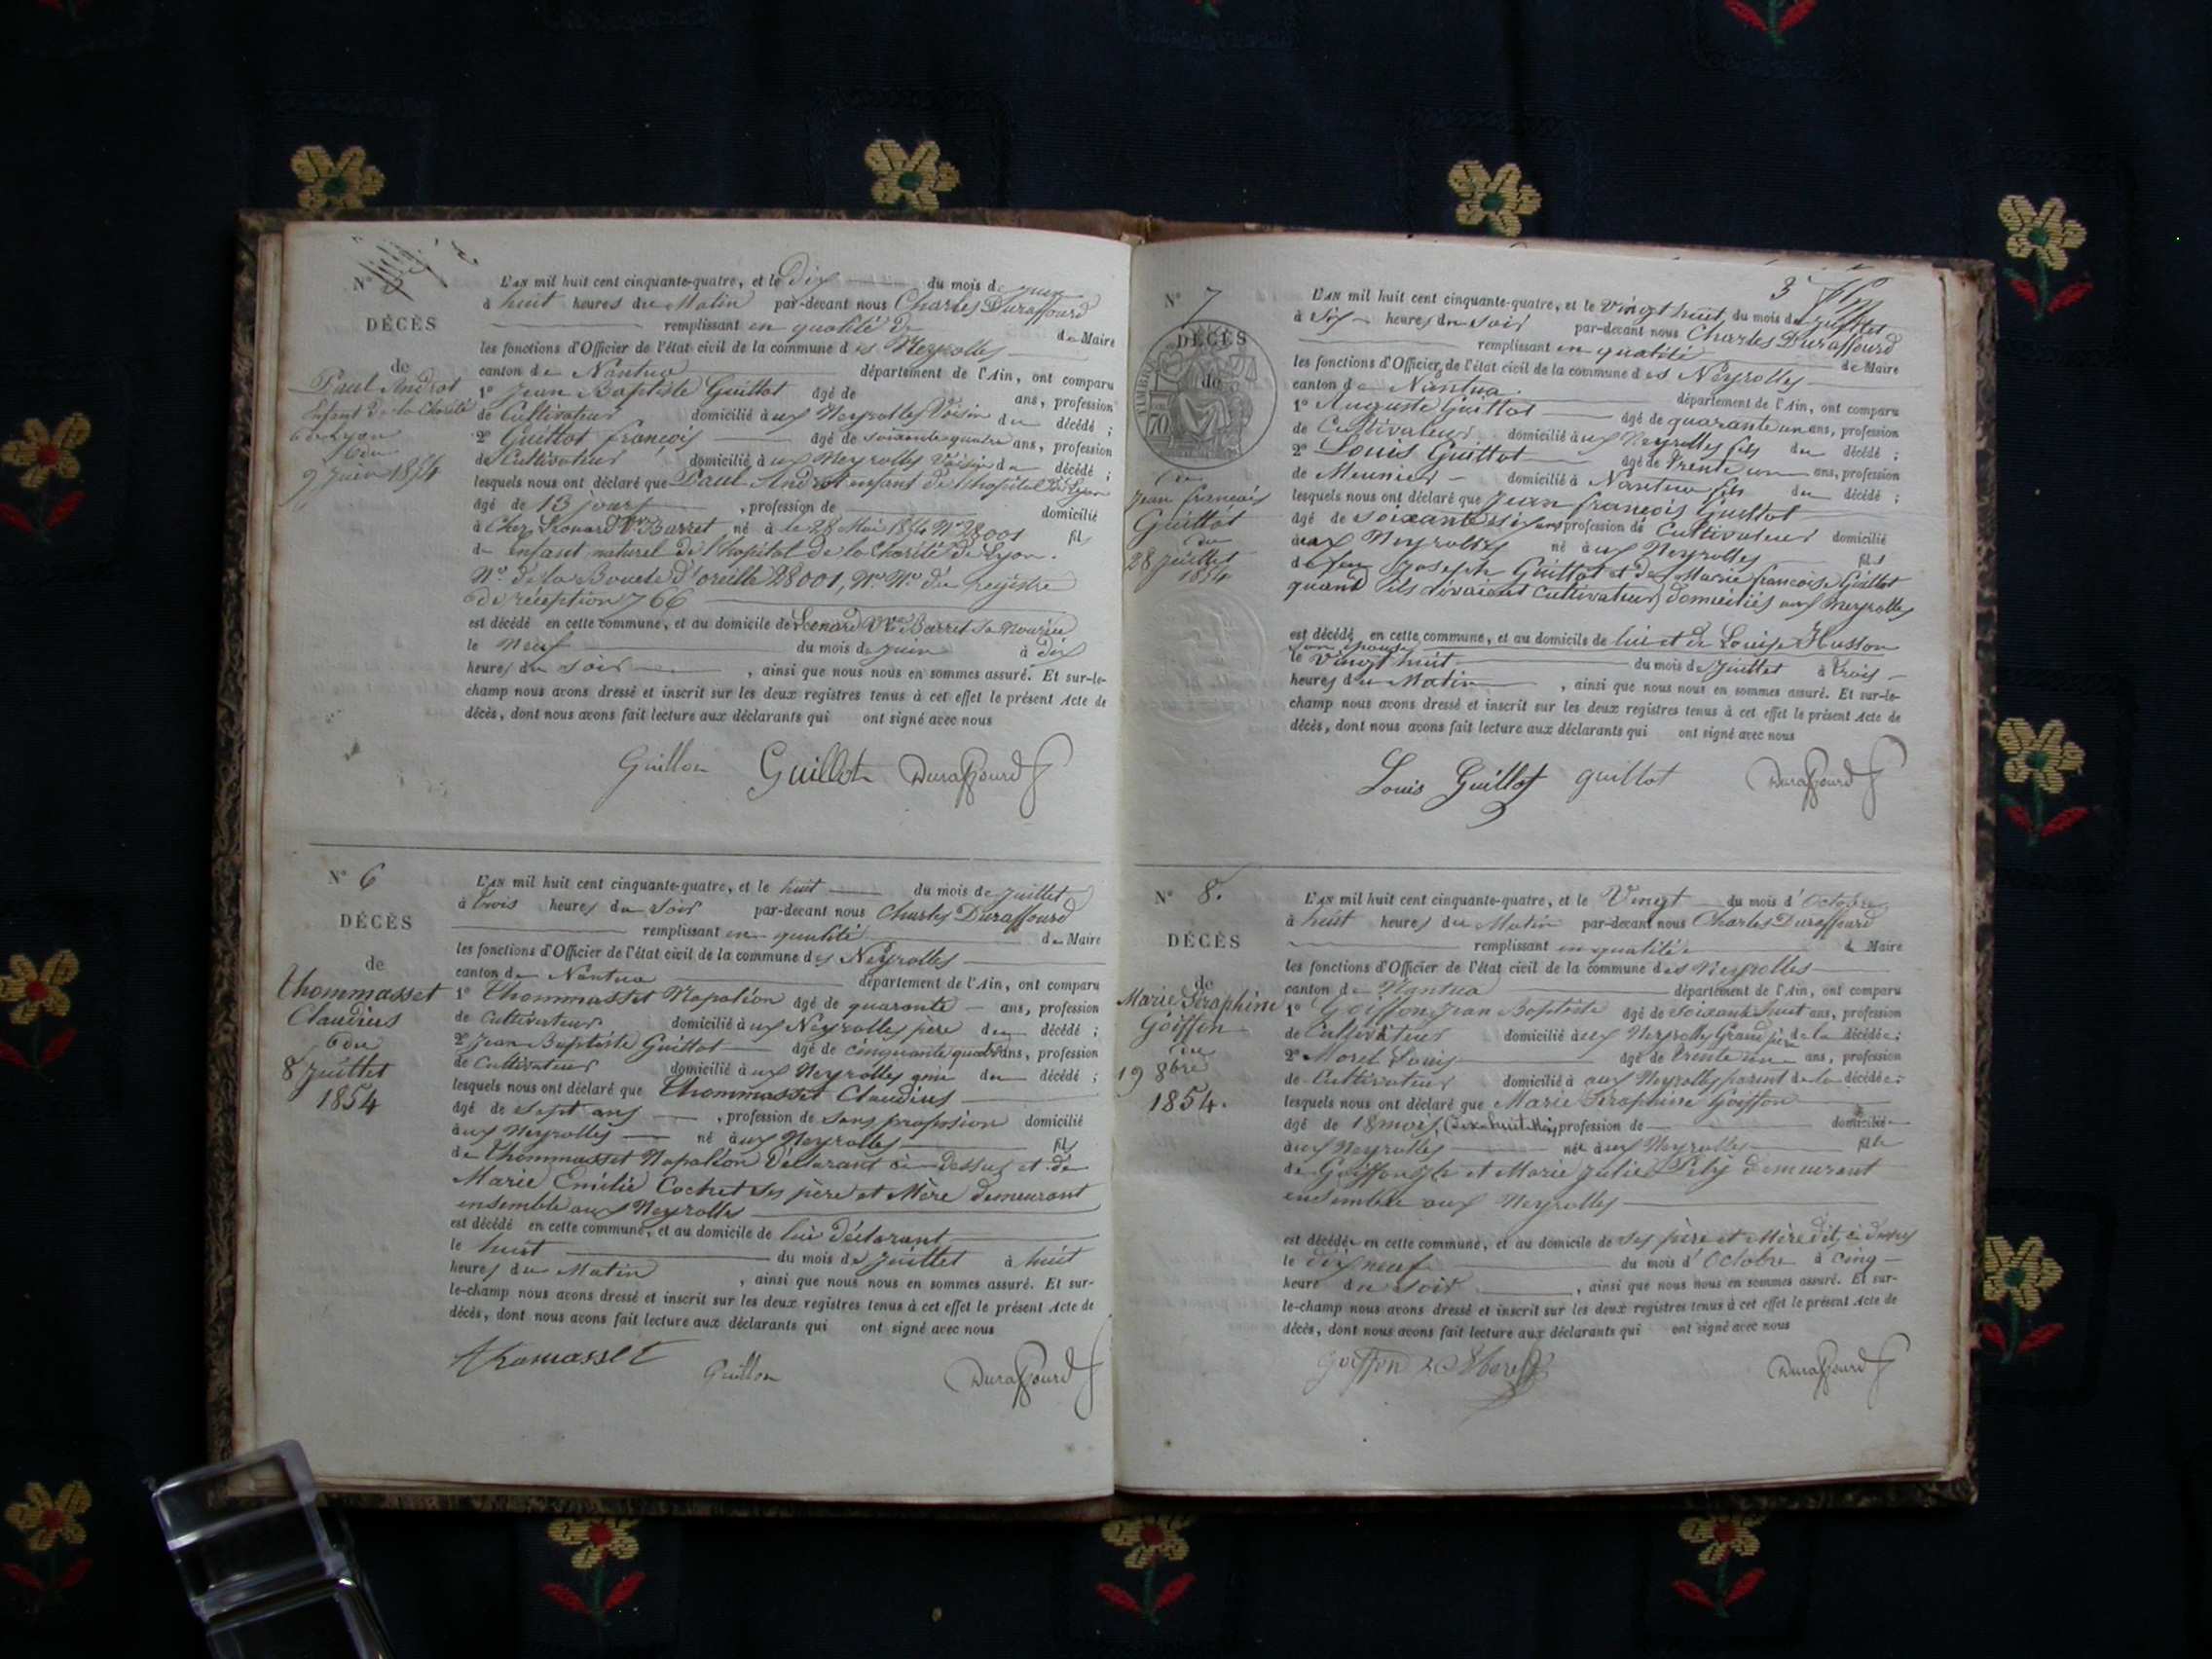 N°
DÉCÈS
de
Paul Androt
Enfant de la Charité
de Lyon
du
9 juin 1854
L'AN mil huit cent cinquante-quatre, et le Dix du mois de juin
à huit heures du Matin par-devant nous Charles Duraffourd
remplissant en qualité de Maire
les fonctions d'Officier de l'état civil de la commune des Neyrolles
canton de Nantua département de l'Ain, ont comparu
1° Jean Baptiste Guillot âgé de ans, profession
de Cultivateur domicilié aux Neyrolles Voisin du décédé ;
2° Guillot françois âgé de soixante quatre ans, profession
de Cultivateur domicilié à aux Neyrolles Voisin du décédé ;
lesquels nous ont déclaré que Paul Androt enfant de l'hopital de Lyon
âgé de 13 jours , profession de domicilié
à Chez Léonard Vve Barret né à le 28 Mai 1854 N° 28001 fils
de enfant naturel de l'hopital de la Charité de Lyon.
N° de la Boucle d'oreille 28001, N° du registre
de réception 766
est décédé en cette commune, et au domicile de Léonard Vve Barret sa nourice
le Neuf du mois de juin à dix
heures du soir , ainsi que nous nous en sommes assuré. Et sur-le-
champ nous avons dressé et inscrit sur les deux registres tenus à cet effet le présent Acte de
décès, dont nous avons fait lecture aux déclarants qui ont signé avec nous
Guillon Guillot Duraffourd
N° 6
DÉCÈS
de
Thommasset
Claudius
du
8 juillet
1854
L'AN mil huit cent cinquante-quatre, et le huit du mois de juillet
à trois heures du soir par-devant nous Charles Duraffourd
remplissant en qualité de Maire
les fonctions d'Officier de l'état civil de la commune des Neyrolles
canton de Nantua département de l'Ain, ont comparu
1° Thommasset Napoléon âgé de quarante ans, profession
de Cultivateur domicilié à aux Neyrolles père du décédé ;
2° Jean Baptiste Guillot âgé de cinquante quatre ans, profession
de Cultivateur domicilié à aux Neyrolles ami du décédé ;
lesquels nous ont déclaré que Thommasset Claudius
âgé de sept ans , profession de sans profession domicilié
aux Neyrolles né aux Neyrolles fils
de Thommasset Napoléon déclarant ci Dessus et de
Marie Emélie Cochet ses père et Mère demeurant
ensemble aux Neyrolles
est décédé en cette commune, et au domicile de lui déclarant
le huit du mois de juillet à huit
heures du Matin , ainsi que nous nous en sommes assuré. Et sur-
le-champ nous avons dressé et inscrit sur les deux registres tenus à cet effet le présent Acte de
décès, dont nous avons fait lecture aux déclarants qui ont signé avec nous
Thomasset Guillon Duraffourd
3
N° 7
DÉCÈS
de
TIMBRE
70
Jean françois
Guillot
du
28 juillet
1854
L'AN mil huit cent cinquante-quatre, et le Vingt huit du mois de juillet
à Six heures du soir par-devant nous Charles Duraffourd
remplissant en qualité de Maire
les fonctions d'Officier de l'état civil de la commune des Neyrolles
canton de Nantua département de l'Ain, ont comparu
1° Auguste Guillot âgé de quarante un ans, profession
de Cultivateur domicilié à aux Neyrolles fils du décédé ;
2° Louis Guillot âgé de trente un ans, profession
de Meunier domicilié à Nantua fils du décédé ;
lesquels nous ont déclaré que Jean françois Guillot
âgé de soixante six ans profession de Cultivateur domicilié
aux Neyrolles né aux Neyrolles fils
de feu Joseph Guillot et de Marie françoise Guillot
quand ils vivaient Cultivateurs domiciliés aux Neyrolles
est décédé en cette commune, et au domicile de lui et de Louise Husson
son épouse
le Vingt huit du mois de Juillet à trois
heures du Matin , ainsi que nous nous en sommes assuré. Et sur-le-
champ nous avons dressé et inscrit sur les deux registres tenus à cet effet le présent Acte de
décès, dont nous avons fait lecture aux déclarants qui ont signé avec nous
Louis Guillot guillot Duraffourd
N° 8.
DÉCÈS
de
Marie Séraphine
Goiffon
du
19 8bre
1854.
L'AN mil huit cent cinquante-quatre, et le Vingt du mois d'Octobre
à huit heures du Matin par-devant nous Charles Duraffourd
remplissant en qualité de Maire
les fonctions d'Officier de l'état civil de la commune des Neyrolles
canton de Nantua département de l'Ain, ont comparu
1° Goiffon Jean Baptiste âgé de soixante huit ans, profession
de Cultivateur domicilié aux Neyrolles Grand père de la décédée ;
2° Morel Louis âgé de trente un ans, profession
de Cultivateur domicilié à aux Neyrolles parent de la décédée ;
lesquels nous ont déclaré que Marie Séraphine Goiffon
âgé de 18 mois, (dix huit Mois) profession de domiciliée
aux Neyrolles née aux Neyrolles fille
de Goiffon et Marie Julie demeurant
ensemble aux Neyrolles
est décédée en cette commune, et au domicile de ses père et Mère dits ci dessus
le dix neuf du mois d'Octobre à cinq
heure du soir , ainsi que nous nous en sommes assuré. Et sur-
le-champ nous avons dressé et inscrit sur les deux registres tenus à cet effet le présent Acte de
décès, dont nous avons fait lecture aux déclarants qui ont signé avec nous
goiffon Morel Duraffourd